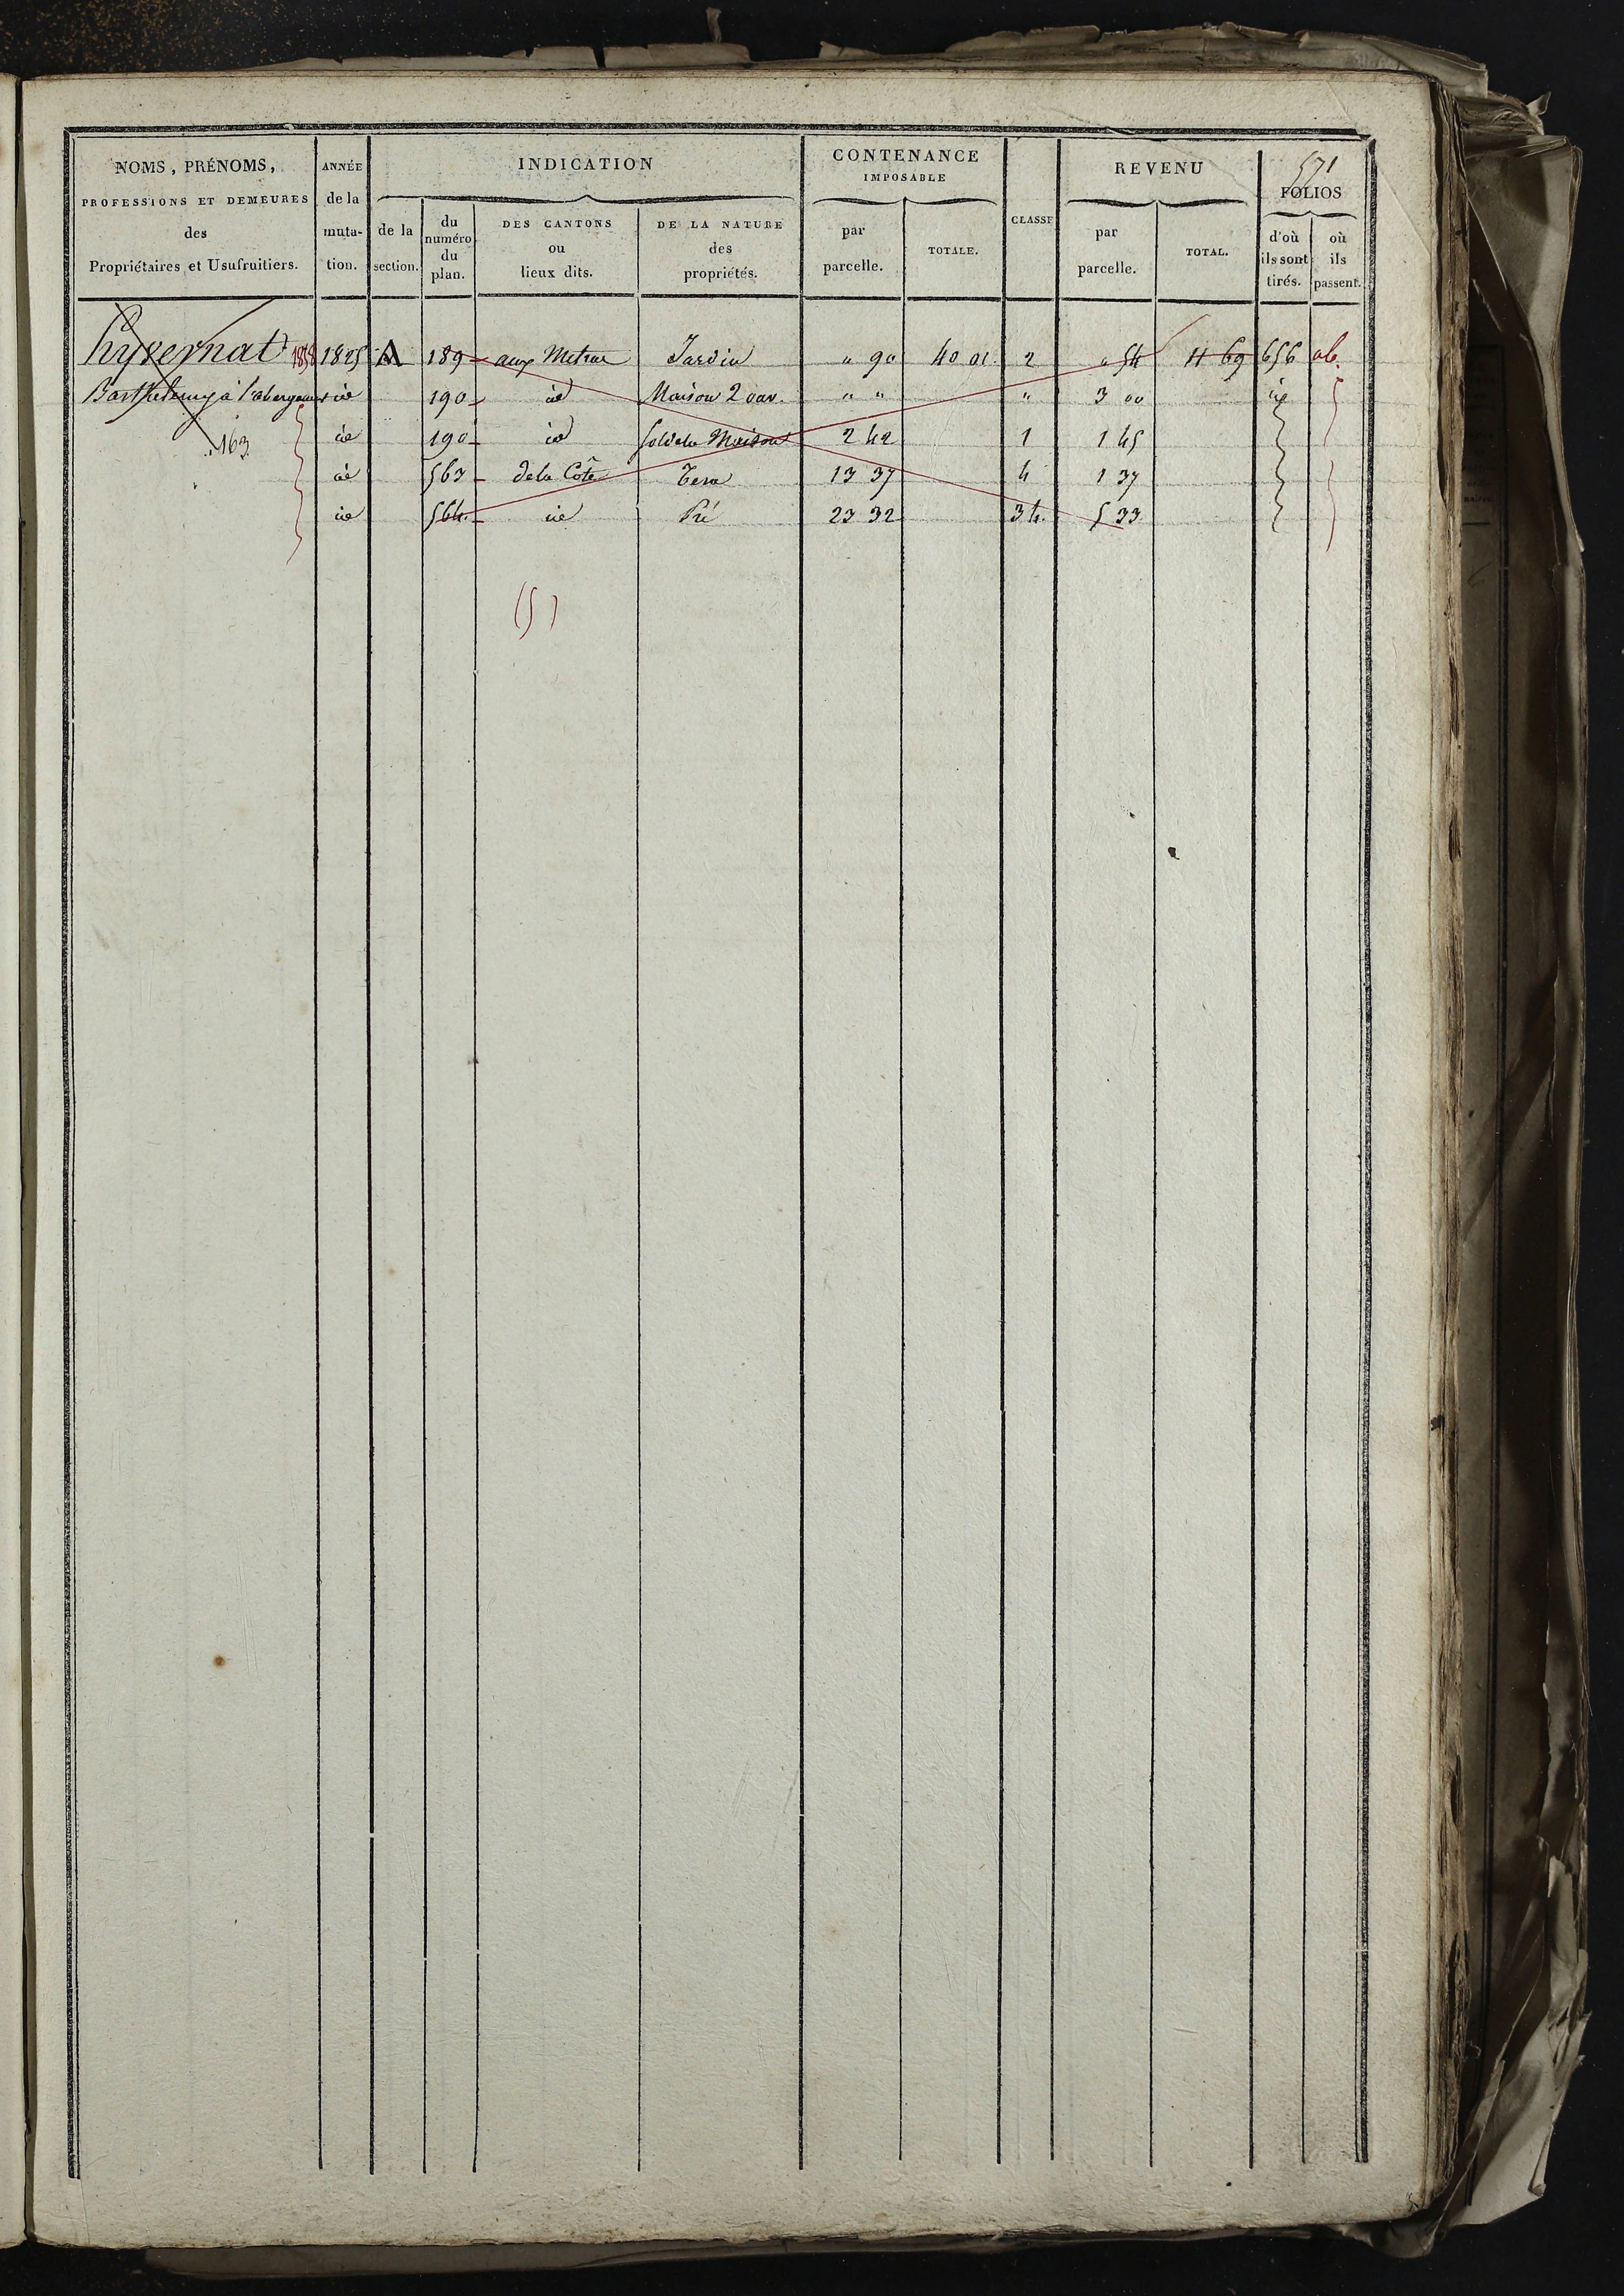 571
NOMS, PRÉNOMS, PROFESSIONS ET DEMEURES des Propriétaires et Usufruitiers.
ANNÉE de la muta-tion.
INDICATION
de la section.
du numéro du plan.
DES CANTONS ou lieux dits.
DE LA NATURE des propriétés.
CONTENANCE IMPOSABLE
par parcelle.
TOTALE.
CLASSE
REVENU
par parcelle.
TOTAL.
FOLIOS
d'où ils sont tirés.
où ils passent.
hyvernat 1825 A 189 aux Jardin " 90 40 01 2 " 54 11 69 656 ab.
Barthelemy à id 190 id Maison 2 ouv. " " " 3 00 id
163 id 190 id Sol de la Maison 2 42 1 1 45
id 563 de la Côte Terre 13 37 4 1 37
id 564 id Pré 23 32 3 4 5 33
(5)